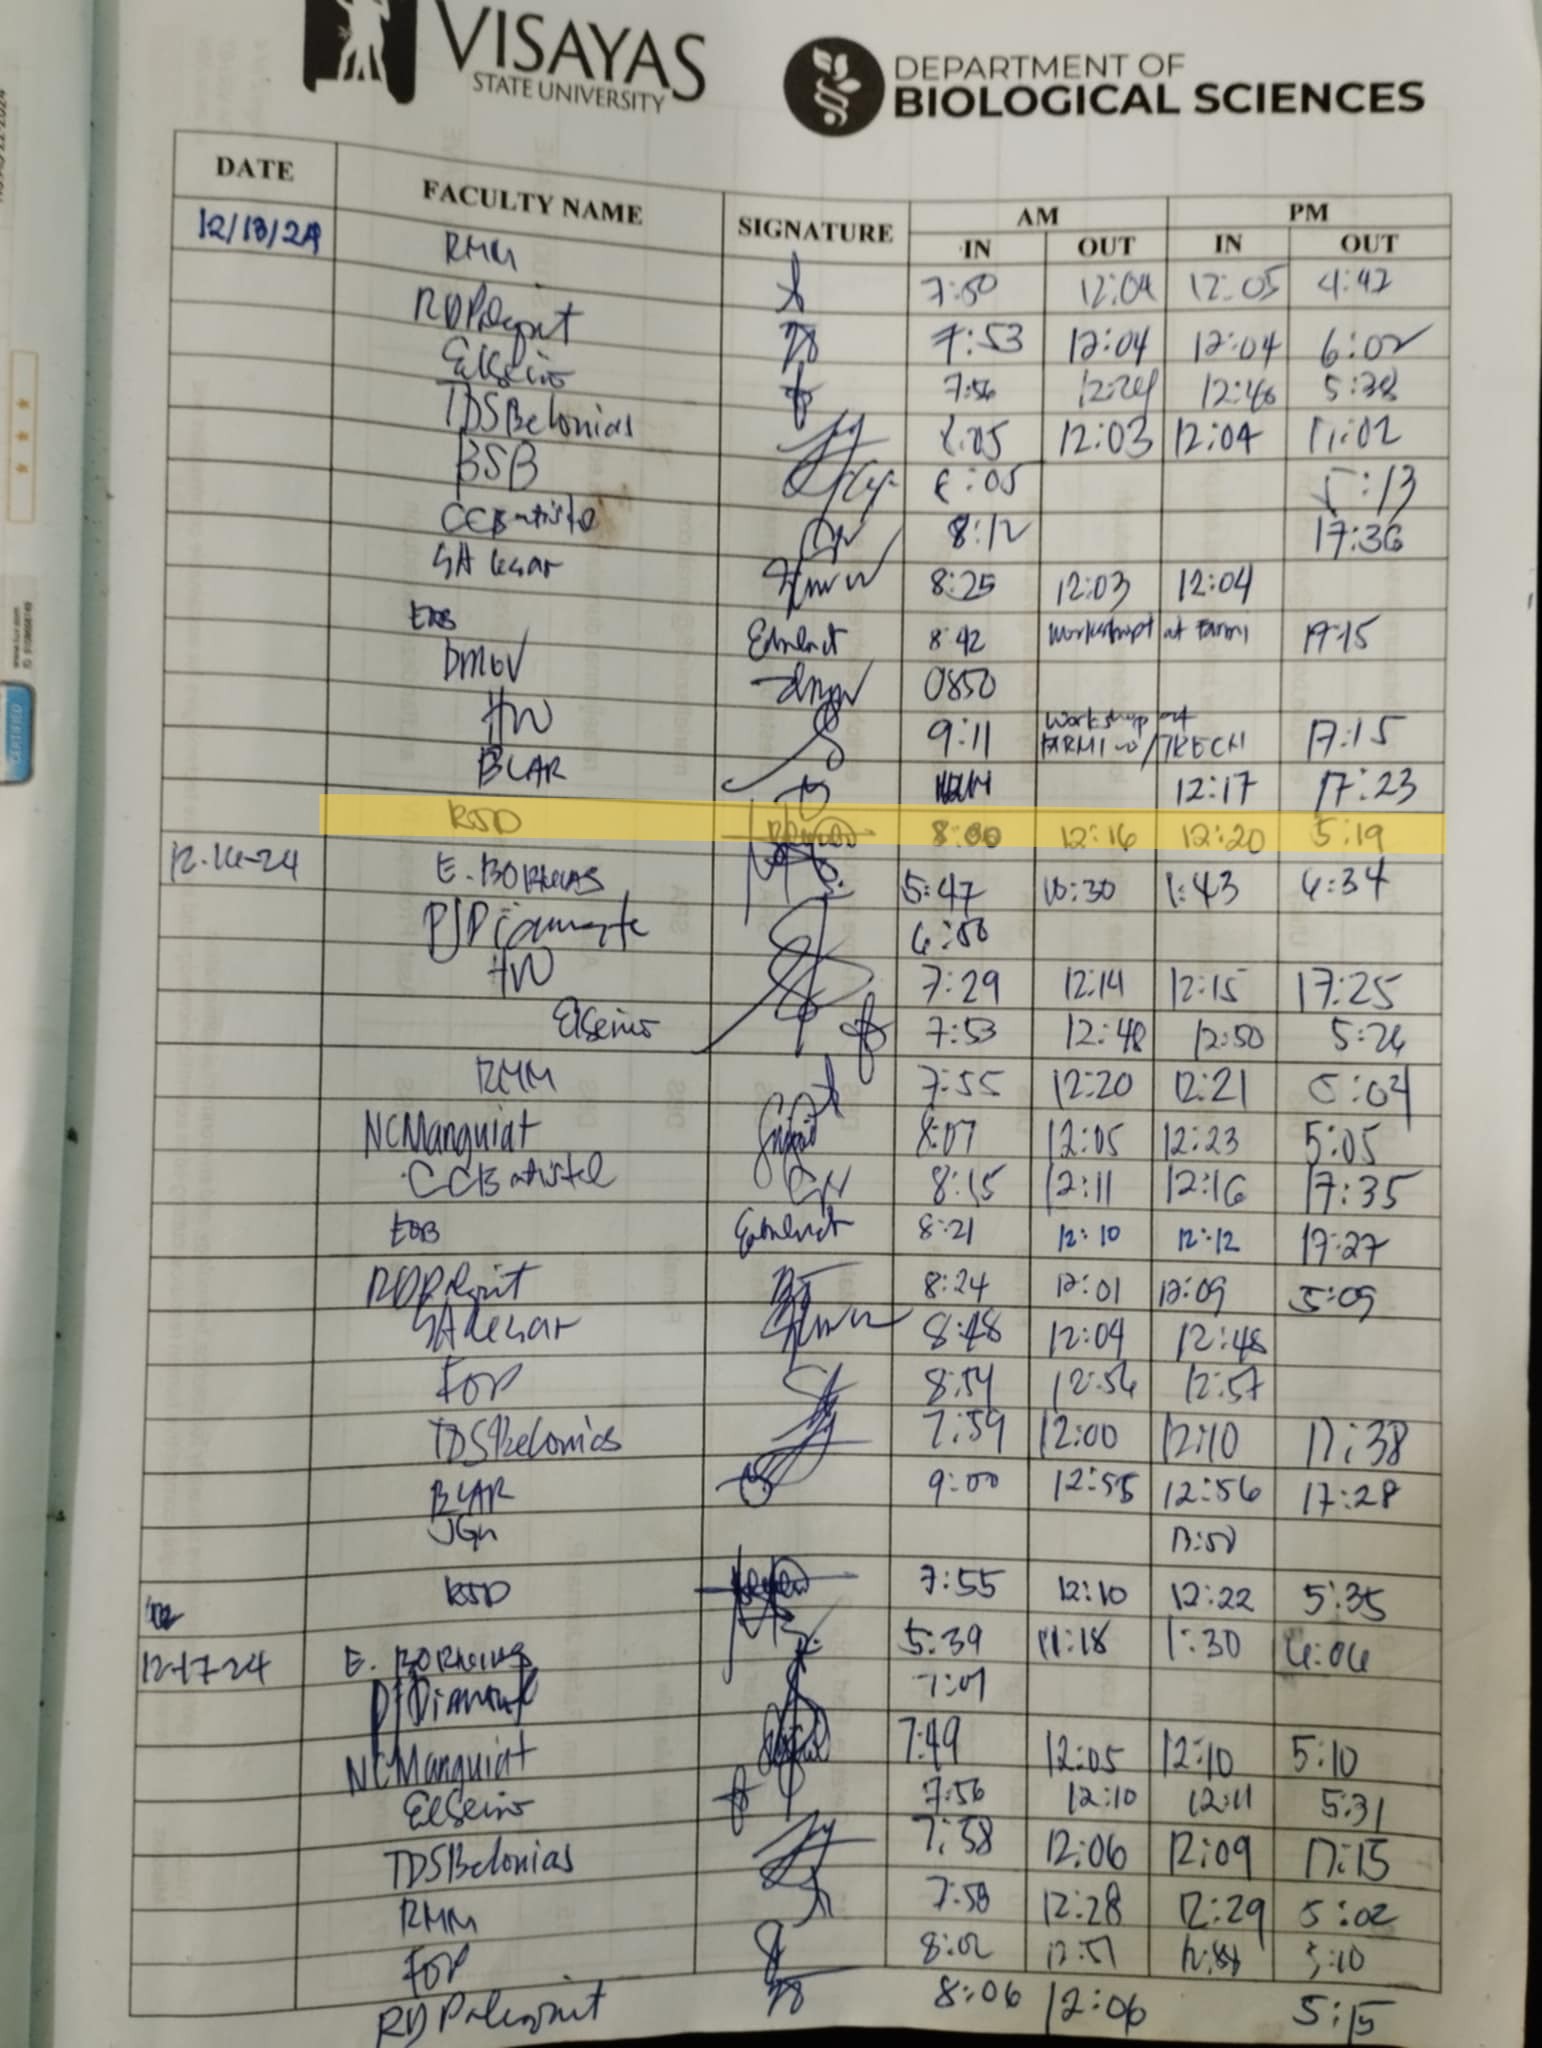 VISAYAS
STATE UNIVERSITY
DEPARTMENT OF
BIOLOGICAL SCIENCES
DATE FACULTY NAME SIGNATURE AM PM
IN OUT IN OUT
12/13/24 RMM 7:50 12:04 12:05 4:42
7:53 12:04 12:04 6:02
7:56 12:24 12:48 5:38
TDSBelonias 8:05 12:03 12:04 17:02
BSB 8:05 5:13
CCBatistel 8:12 17:36
8:25 12:03 12:04
EDB 8:42 workshop at FARMI 17:15
DMGV 0850
HW 9:11 workshop at FARMI 17:15
BLAR 12:17 17:23
RSD 8:00 12:16 12:20 5:19
12-16-24 E. BORINAS 5:47 10:30 1:43 6:34
PJDiamante 6:50
HW 7:29 12:14 12:15 17:25
7:53 12:48 12:50 5:26
RMM 7:55 12:20 12:21 5:04
NCManguiat 8:07 12:05 12:23 5:05
CCBatistel 8:15 12:11 12:16 17:35
EDB 8:21 12:10 12:12 17:27
8:24 12:01 12:09 5:09
8:48 12:04 12:48
FOP 8:54 12:56 12:57
TDSBelonias 7:59 12:00 12:10 17:38
BLAR 9:00 12:55 12:56 17:28
JGM 13:50
RSD 7:55 12:10 12:22 5:35
12-17-24 E. BORINAS 5:39 11:18 1:30 6:06
PJDiamante 7:07
NCManguiat 7:49 12:05 12:10 5:10
7:56 12:10 12:11 5:31
TDSBelonias 7:58 12:06 12:09 17:15
RMM 7:58 12:28 12:29 5:02
FOP 8:02 12:57 12:58 5:10
8:06 12:06 5:15